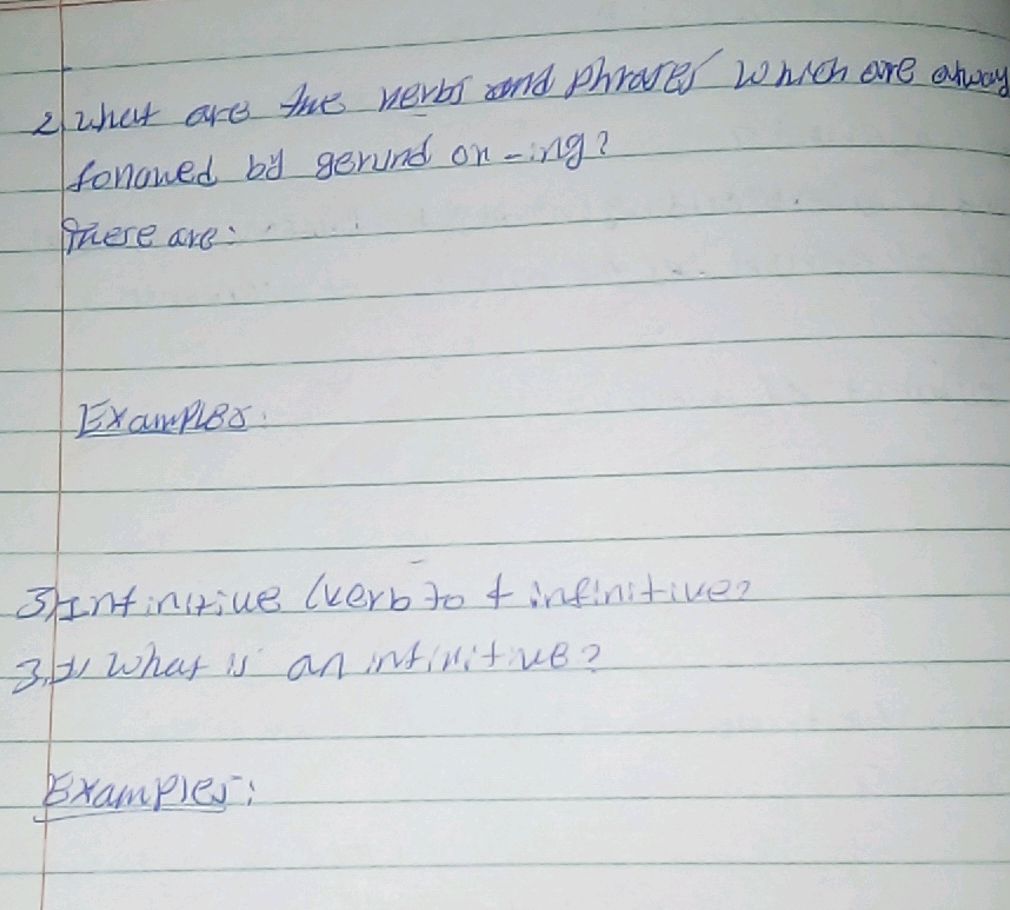 2) What are the verbs and phrases which are always
followed by gerund or -ing?
There are:
Examples:
3) Infinitive (verb to + infinitive?
3.1) What is an infinitive?
Examples: